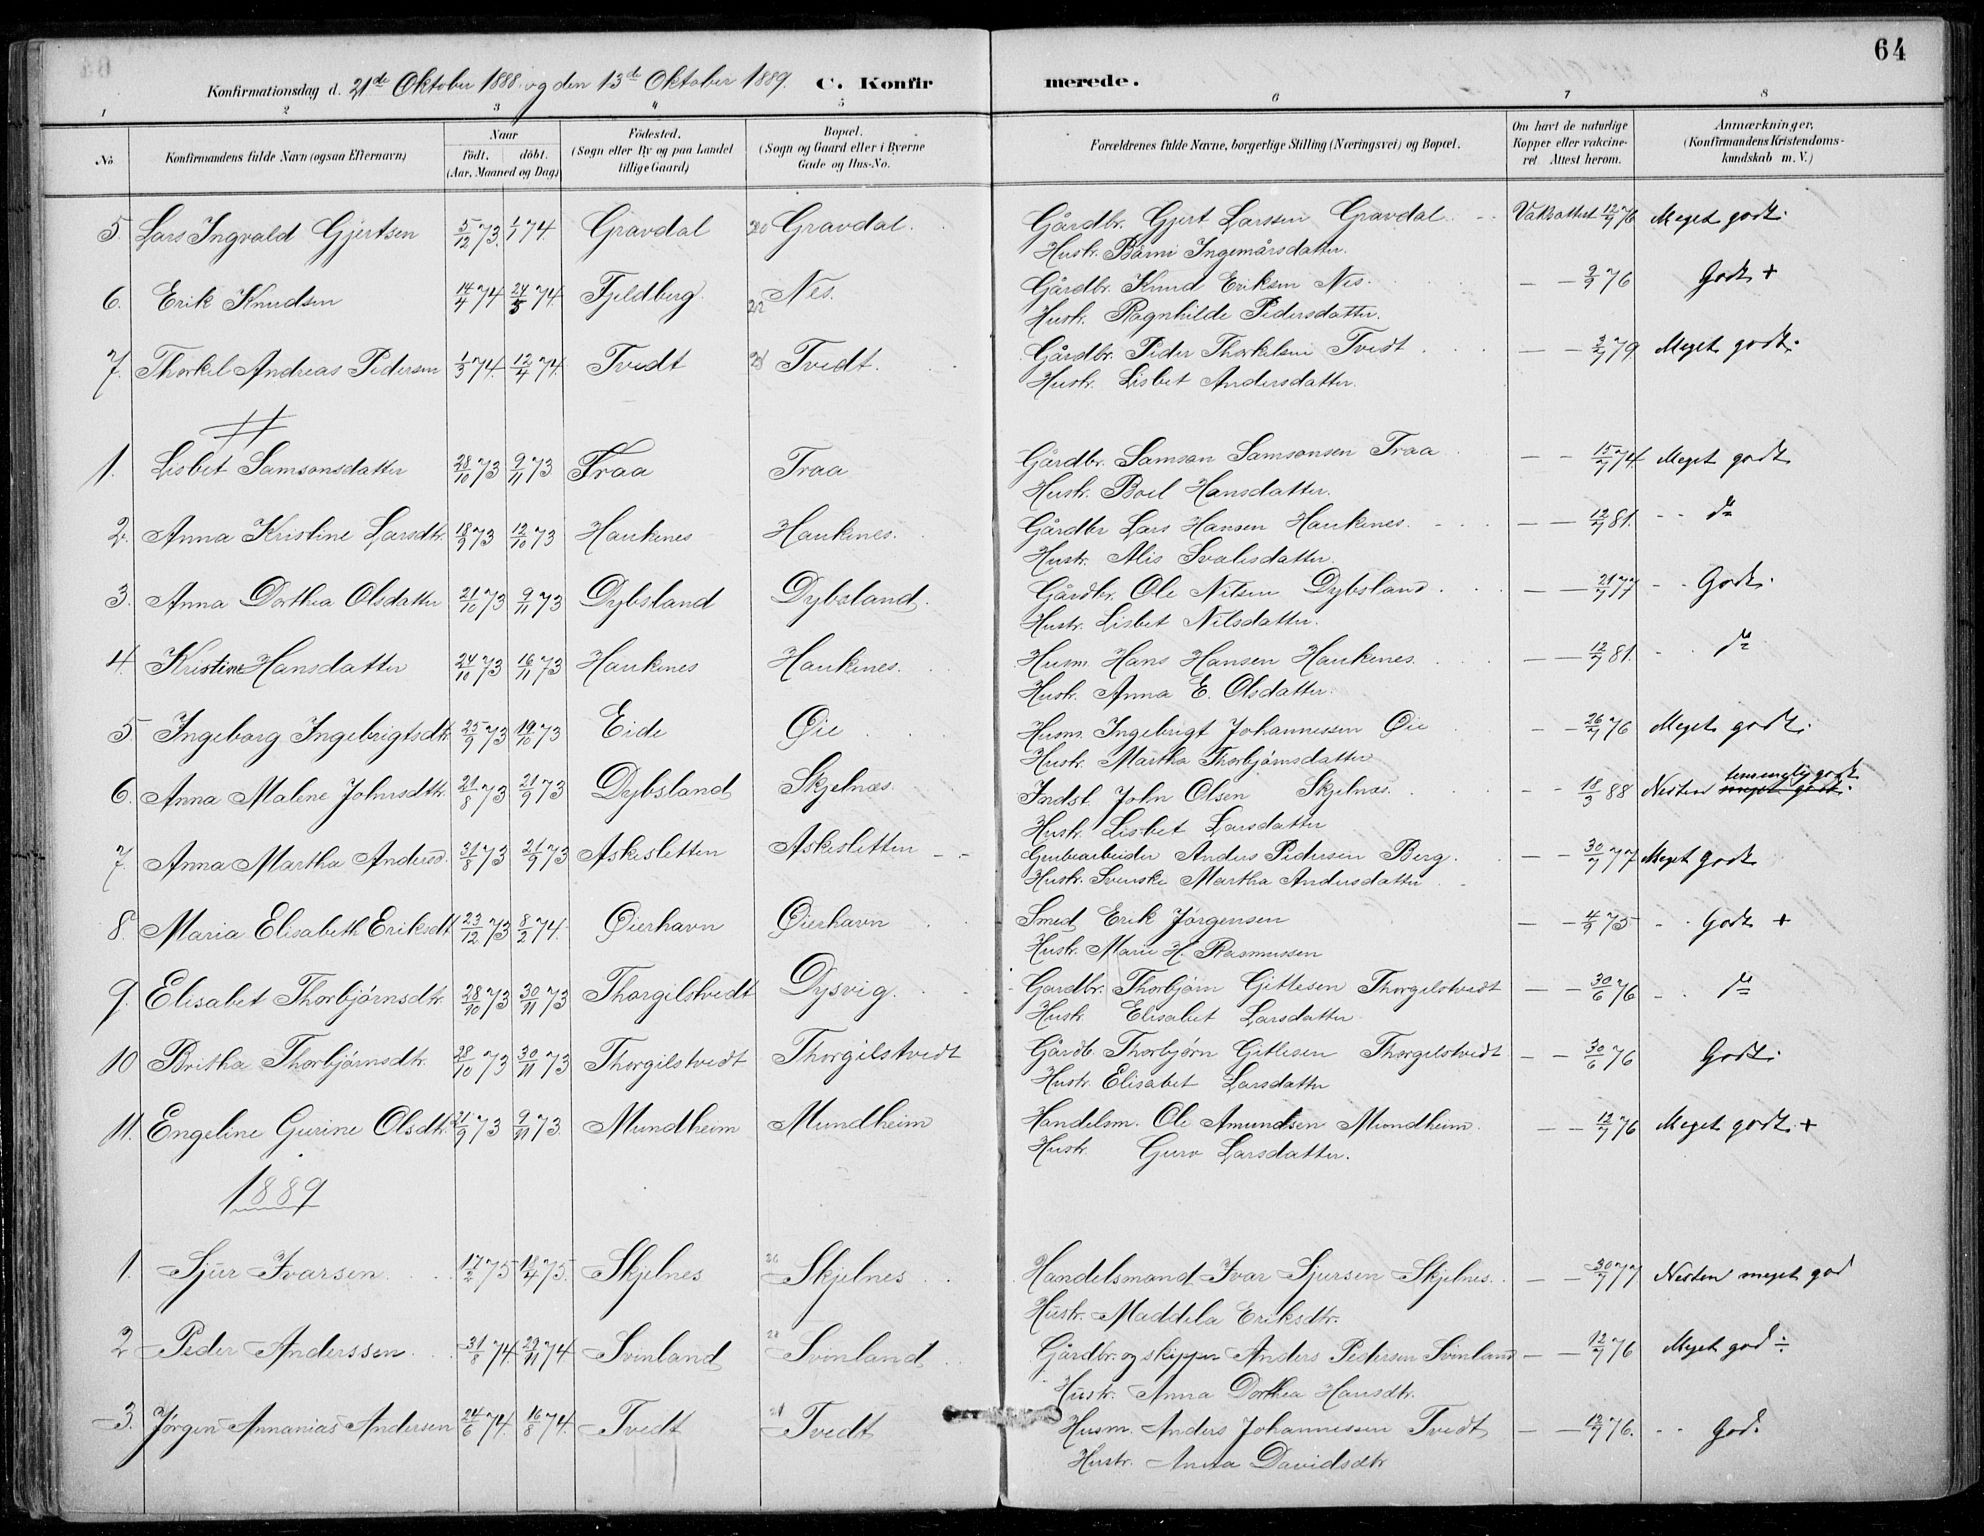 64
Konfirmationsdag d. 21de Oktober 1888 og den 13de Oktober 1889. C. Konfirmerede.
1 2 3 4 5 6 7 8
No. Konfirmandens fulde Navn (ogsaa Efternavn) Naar født. døbt. (Aar, Maaned og Dag) Fødested. (Sogn eller By og paa Landet tillige Gaard) Bopæl. (Sogn og Gaard eller i Byerne Gade og Hus-No. Forældrenes fulde Navne, borgerlige Stilling (Næringsvei) og Bopæl. Om havt de naturlige Kopper eller vakcineret. Attest herom. Anmærkninger, (Konfirmandens Kristendomskundskab m. V.)
5. Lars Ingvald Gjertsen 5/12 73. 1/1 74. Gravdal 20 Gravdal. Gårdbr. Gjert Larssen Gravdal Vakcattest 12/7 76 Meget godt.
Hustr. Barni Ingemårsdatter.
6. Erik Knudsen 14/4 74 24/5 74. Fjeldberg. 22 Nes. Gårdbr. Knud Eriksen Nes. — — 2/9 76 Godt +
Hustr. Ragnhilde Pedersdatter.
7. Thorkel Andreas Pedersen 1/3 74. 12/4 74. Tvedt 21 Tvedt. Gårdbr. Peder Thorkelsen Tvedt — — 3/7 79 Meget godt.
Hustr. Lisbet Andersdatter.
1. Lisbet Samsonsdatter 28/10 73 9/11 73 Traa Traa Gårdbr. Samson Samsonsen Traa — — 15/7 74. Meget godt
Hustr. Boel Hansdatter.
2. Anna Kristine Larsdtr. 18/9 73 12/10 73 Haukenes Haukenes. Gårdbr Lars Hansen Haukenes. — — 12/7 81. do
Hustr. Alis Svalesdatter.
3. Anna Dorthea Olsdatter 21/10 73 9/11 73 Dybsland Dybsland. Gårdbr. Ole Nilsen Dybsland. — — 21/7 77 Godt.
Hustr. Lisbet Nilsdatter.
4. Kristine Hansdatter 24/10 73 16/11 73 Haukenes Haukenes. Husm. Hans Hansen Haukenes. — — 12/7 81. do
Hustr. Anna E. Olsdatter.
5. Ingeborg Ingebrigtsdtr 25/9 73 19/10 73 Eide Øie Husm. Ingebrigt Johannessen Øie — — 26/7 76 Meget godt.
Hustr. Martha Thorbjørnsdatter
6. Anna Malene Johnsdtr. 21/8 73 21/9 73 Dybsland Skjelnæs. Indst. John Olsen Skjelnæs. — — 18/3 88 Nesten meget godt. temmelig godt
Hustr. Lisbet Larsdatter
7. Anna Martha Andersd. 31/8 73 21/9 73 Askesletten Askesletten Grubearbeider Anders Pedersen Berg. — — 30/7 77 Meget godt
Hustr. Svenske Martha Andersdatter
8. Maria Elisabeth Eriksdt 23/12 73 8/2 74. Øierhavn Øierhavn Smed Erik Jørgensen — — 4/9 75 Godt +
Hustr. Marie H. Rasmussen
9. Elisabet Thorbjørnsdtr. 28/10 73 30/11 73 Thorgilstvedt Dysvig. Gardbr. Thorbjørn Gitlesen Thorgilstvedt — — 30/6 76 do
Hustr. Elisabet Larsdatter
10 Britha Thorbjørnsdtr. 28/10 73 30/11 73 Thorgilstvedt Thorgilstvedt Gårdb. Thorbjørn Gitlesen Thorgilstvedt — — 30/6 76 Godt.
Hustr. Elisabet Larsdatter
11. Engeline Gurine Olsdtr. 21/9 73 9/11 73. Mundheim Mundheim Handelsm. Ole Amundsen Mundheim. — — 12/7 76 Meget godt +
Hustr. Guro Larsdatter.
1889
1. Sjur Ivarsen. 17/2 75 18/4 75. Skjelnes Skjelnes Handelsmand Ivar Sjursen Skjelnes. — — 30/7 77 Nesten meget god
Hustr. Maddela Eriksdtr.
2 Peder Anderssen. 31/8 74. 29/11 74 Svinland Svinland Gårdbr. og skipper Anders Pedersen Svinland — — 12/7 76 Meget god ÷
Hustr. Anna Dorthea Hansdtr.
3. Jørgen Annanias Andersen 24/6 74. 16/8 74. Tvedt 21 Tvedt Husm. Anders Johannessen Tvedt — — 12/7 76. God.
Hustr. Anna Davidsdtr